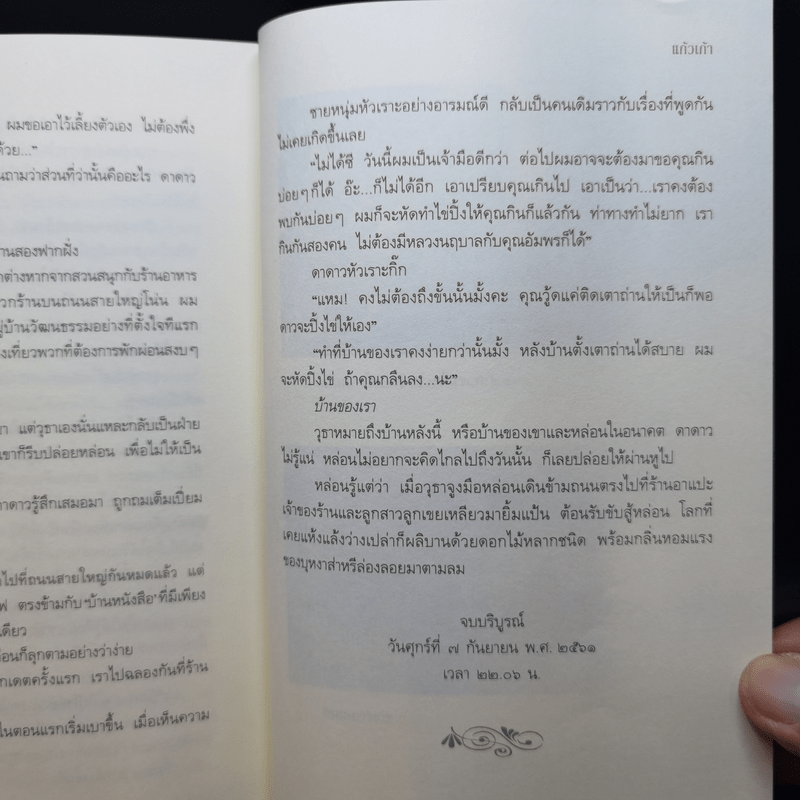 ผมขอเอาไว้เลี้ยงตัวเอง ไม่ต้องพึ่ง
ด้วย...”
นถามว่าส่วนที่ว่านั้นคืออะไร ดาดาว
านสองฟากฝั่ง
าต่างหากจากสวนสนุกกับร้านอาหาร
วกร้านบนถนนสายใหญ่โน่น ผม
ู่บ้านวัฒนธรรมอย่างที่ตั้งใจทีแรก
งเที่ยวพวกที่ต้องการพักผ่อนสงบๆ
มา แต่วุธาเองนั่นแหละกลับเป็นฝ่าย
เขาก็รีบปล่อยหล่อน เพื่อไม่ให้เป็น
าดาวรู้สึกเสมอมา ถูกถมเต็มเปี่ยม
าไปที่ถนนสายใหญ่กันหมดแล้ว แต่
ฟ ตรงข้ามกับ‘บ้านหนังสือ’ที่มีเพียง
เดียว
่อนก็ลุกตามอย่างว่าง่าย
กเดตครั้งแรก เราไปฉลองกันที่ร้าน
ในตอนแรกเริ่มเบาขึ้น เมื่อเห็นความ
แก้วเก้า
ชายหนุ่มหัวเราะอย่างอารมณ์ดี กลับเป็นคนเดิมราวกับเรื่องที่พูดกัน
ไม่เคยเกิดขึ้นเลย
“ไม่ได้ซี วันนี้ผมเป็นเจ้ามือดีกว่า ต่อไปผมอาจจะต้องมาขอคุณกิน
บ่อยๆก็ได้ อ๊ะ...ก็ไม่ได้อีก เอาเปรียบคุณเกินไป เอาเป็นว่า...เราคงต้อง
พบกันบ่อยๆ ผมก็จะหัดทำไข่ปิ้งให้คุณกินก็แล้วกัน ท่าทางทำไม่ยาก เรา
กินกันสองคน ไม่ต้องมีหลวงนฤบาลกับคุณอัมพรก็ได้”
ดาดาวหัวเราะกิ๊ก
“แหม! คงไม่ต้องถึงขั้นนั้นมั้งคะ คุณวู้ดแค่ติดเตาถ่านให้เป็นก็พอ
ดาวจะปิ้งไข่ให้เอง”
“ทำที่บ้านของเราคงง่ายกว่านั้นมั้ง หลังบ้านตั้งเตาถ่านได้สบาย ผม
จะหัดปิ้งไข่ ถ้าคุณกลืนลง...นะ”
บ้านของเรา
วุธาหมายถึงบ้านหลังนี้ หรือบ้านของเขาและหล่อนในอนาคต ดาดาว
ไม่รู้แน่ หล่อนไม่อยากจะคิดไกลไปถึงวันนั้น ก็เลยปล่อยให้ผ่านหูไป
หล่อนรู้แต่ว่า เมื่อวุธาจูงมือหล่อนเดินข้ามถนนตรงไปที่ร้านอาแปะ
เจ้าของร้านและลูกสาวลูกเขยเหลียวมายิ้มแป้น ต้อนรับขับสู้หล่อน โลกที่
เคยแห้งแล้งว่างเปล่าก็ผลิบานด้วยดอกไม้หลากชนิด พร้อมกลิ่นหอมแรง
ของบุหงาส่าหรีล่องลอยมาตามลม
จบบริบูรณ์
วันศุกร์ที่ ๗ กันยายน พ.ศ. ๒๕๖๑
เวลา ๒๒.๐๖ น.